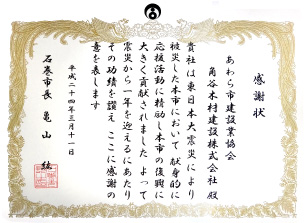 感謝状
あわら市建設業協会
角谷木材建設株式会社 殿
貴社は東日本大震災により
被災した本市において 献身的に
応援活動に精励し本市の復興に
大きく貢献されました よって
震災から一年を迎えるにあたり
その功績を讃え ここに感謝の
意を表します
平成二十四年三月十一日
石巻市長 亀山 紘